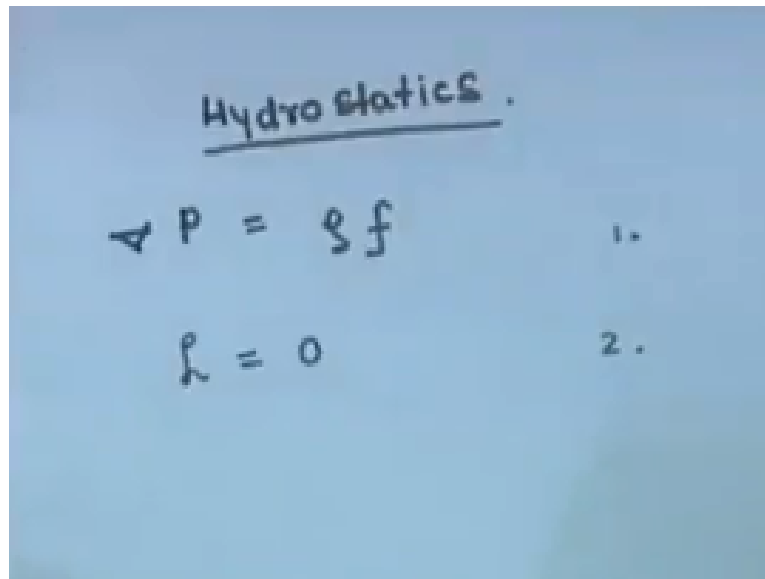 Hydrostatics.
∇ P = ρ f 1.
= 0 2.